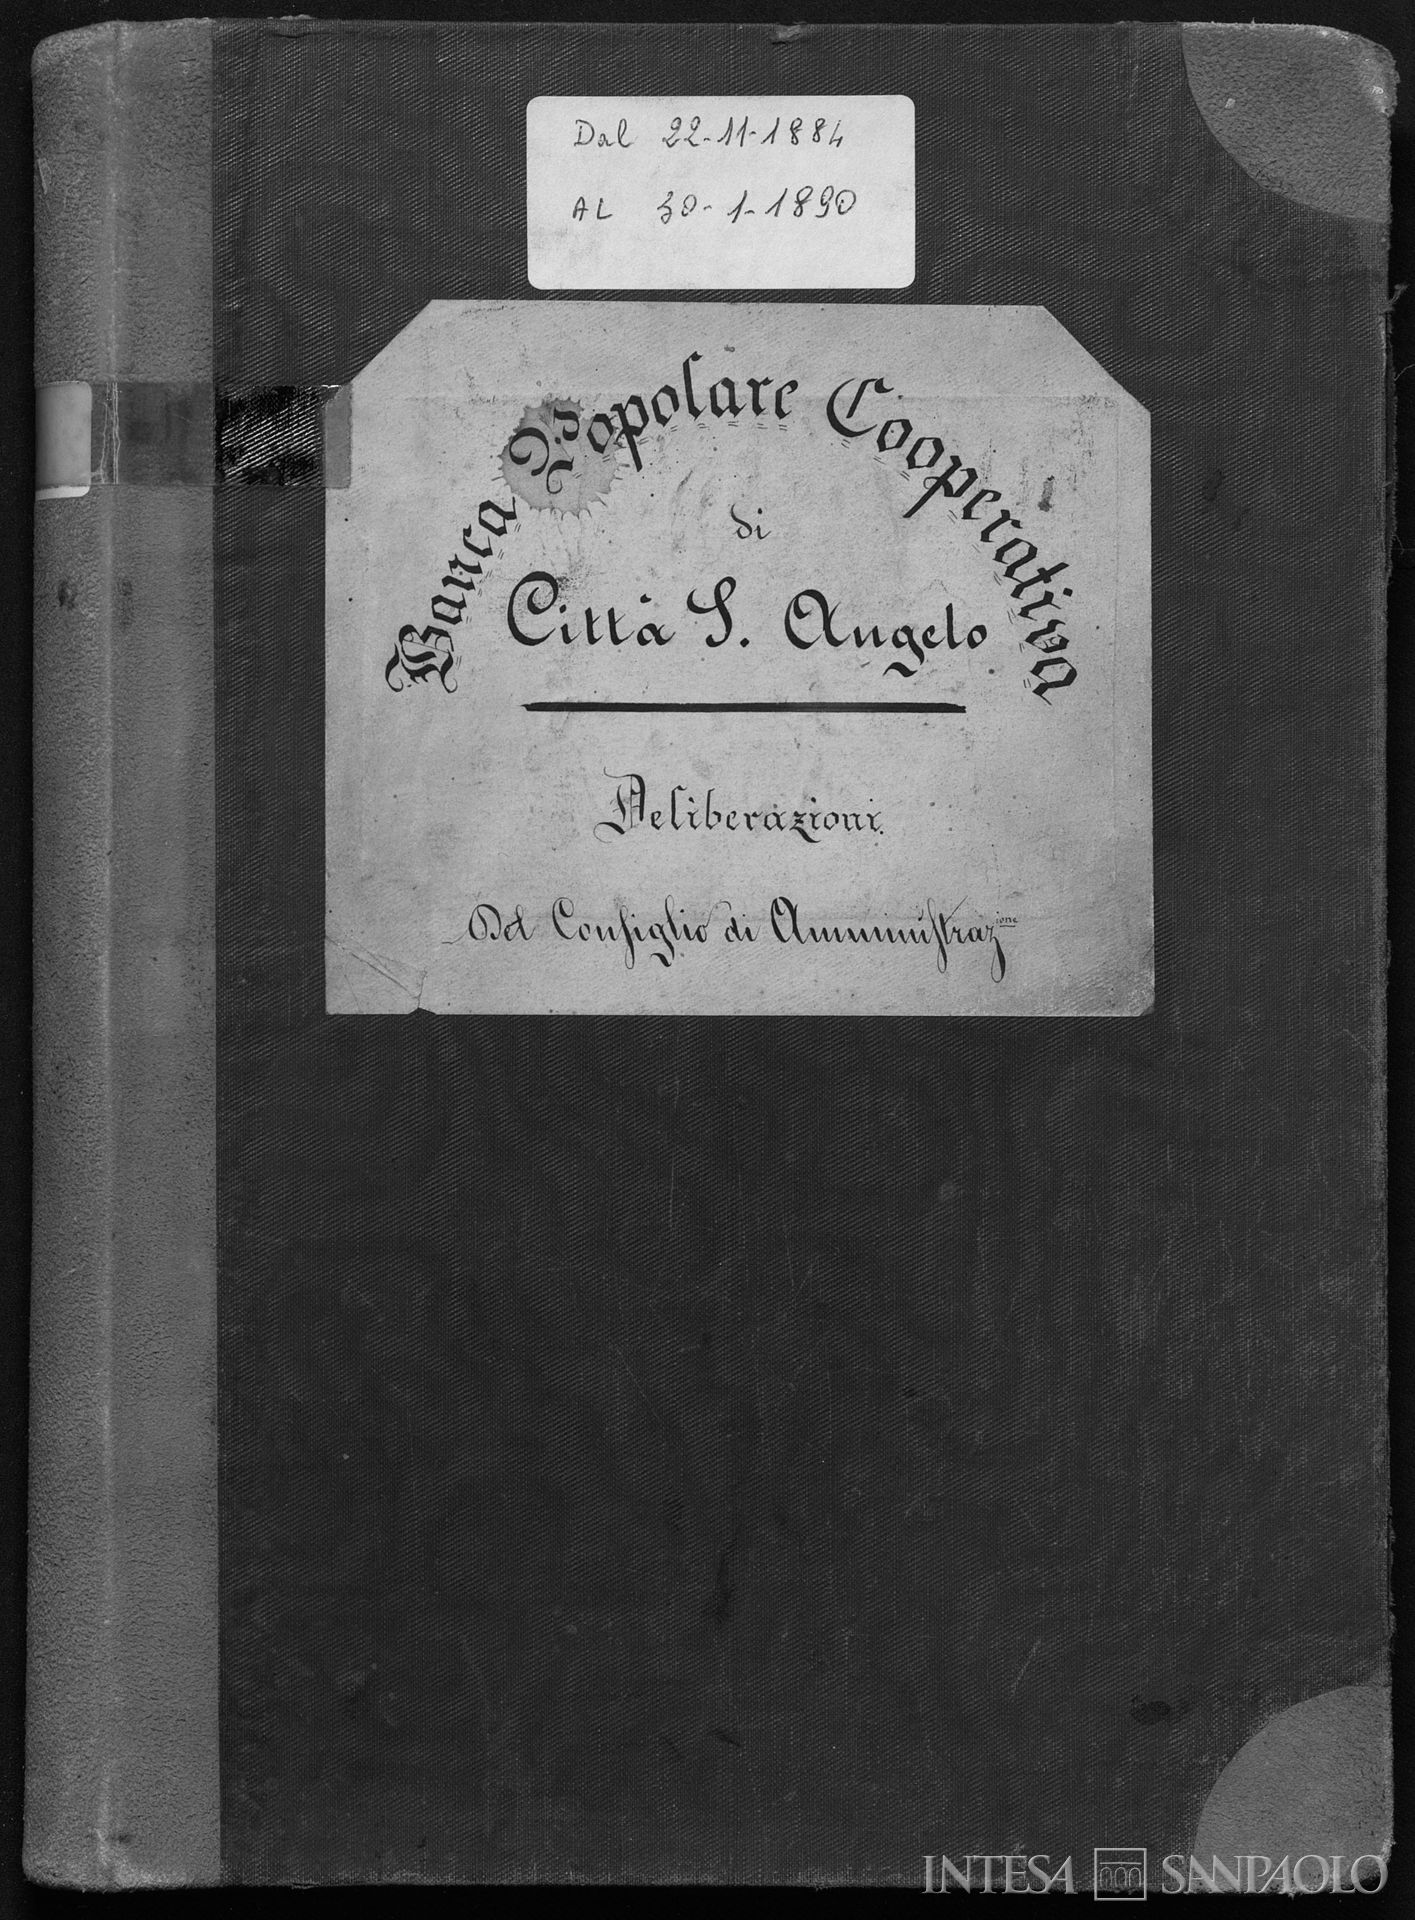 Dal 22-11-1884
AL 30-1-1890
Banca Popolare Cooperativa
di
Città S. Angelo
Deliberazioni
Del Consiglio di Amministraz.ione
INTESA SANPAOLO